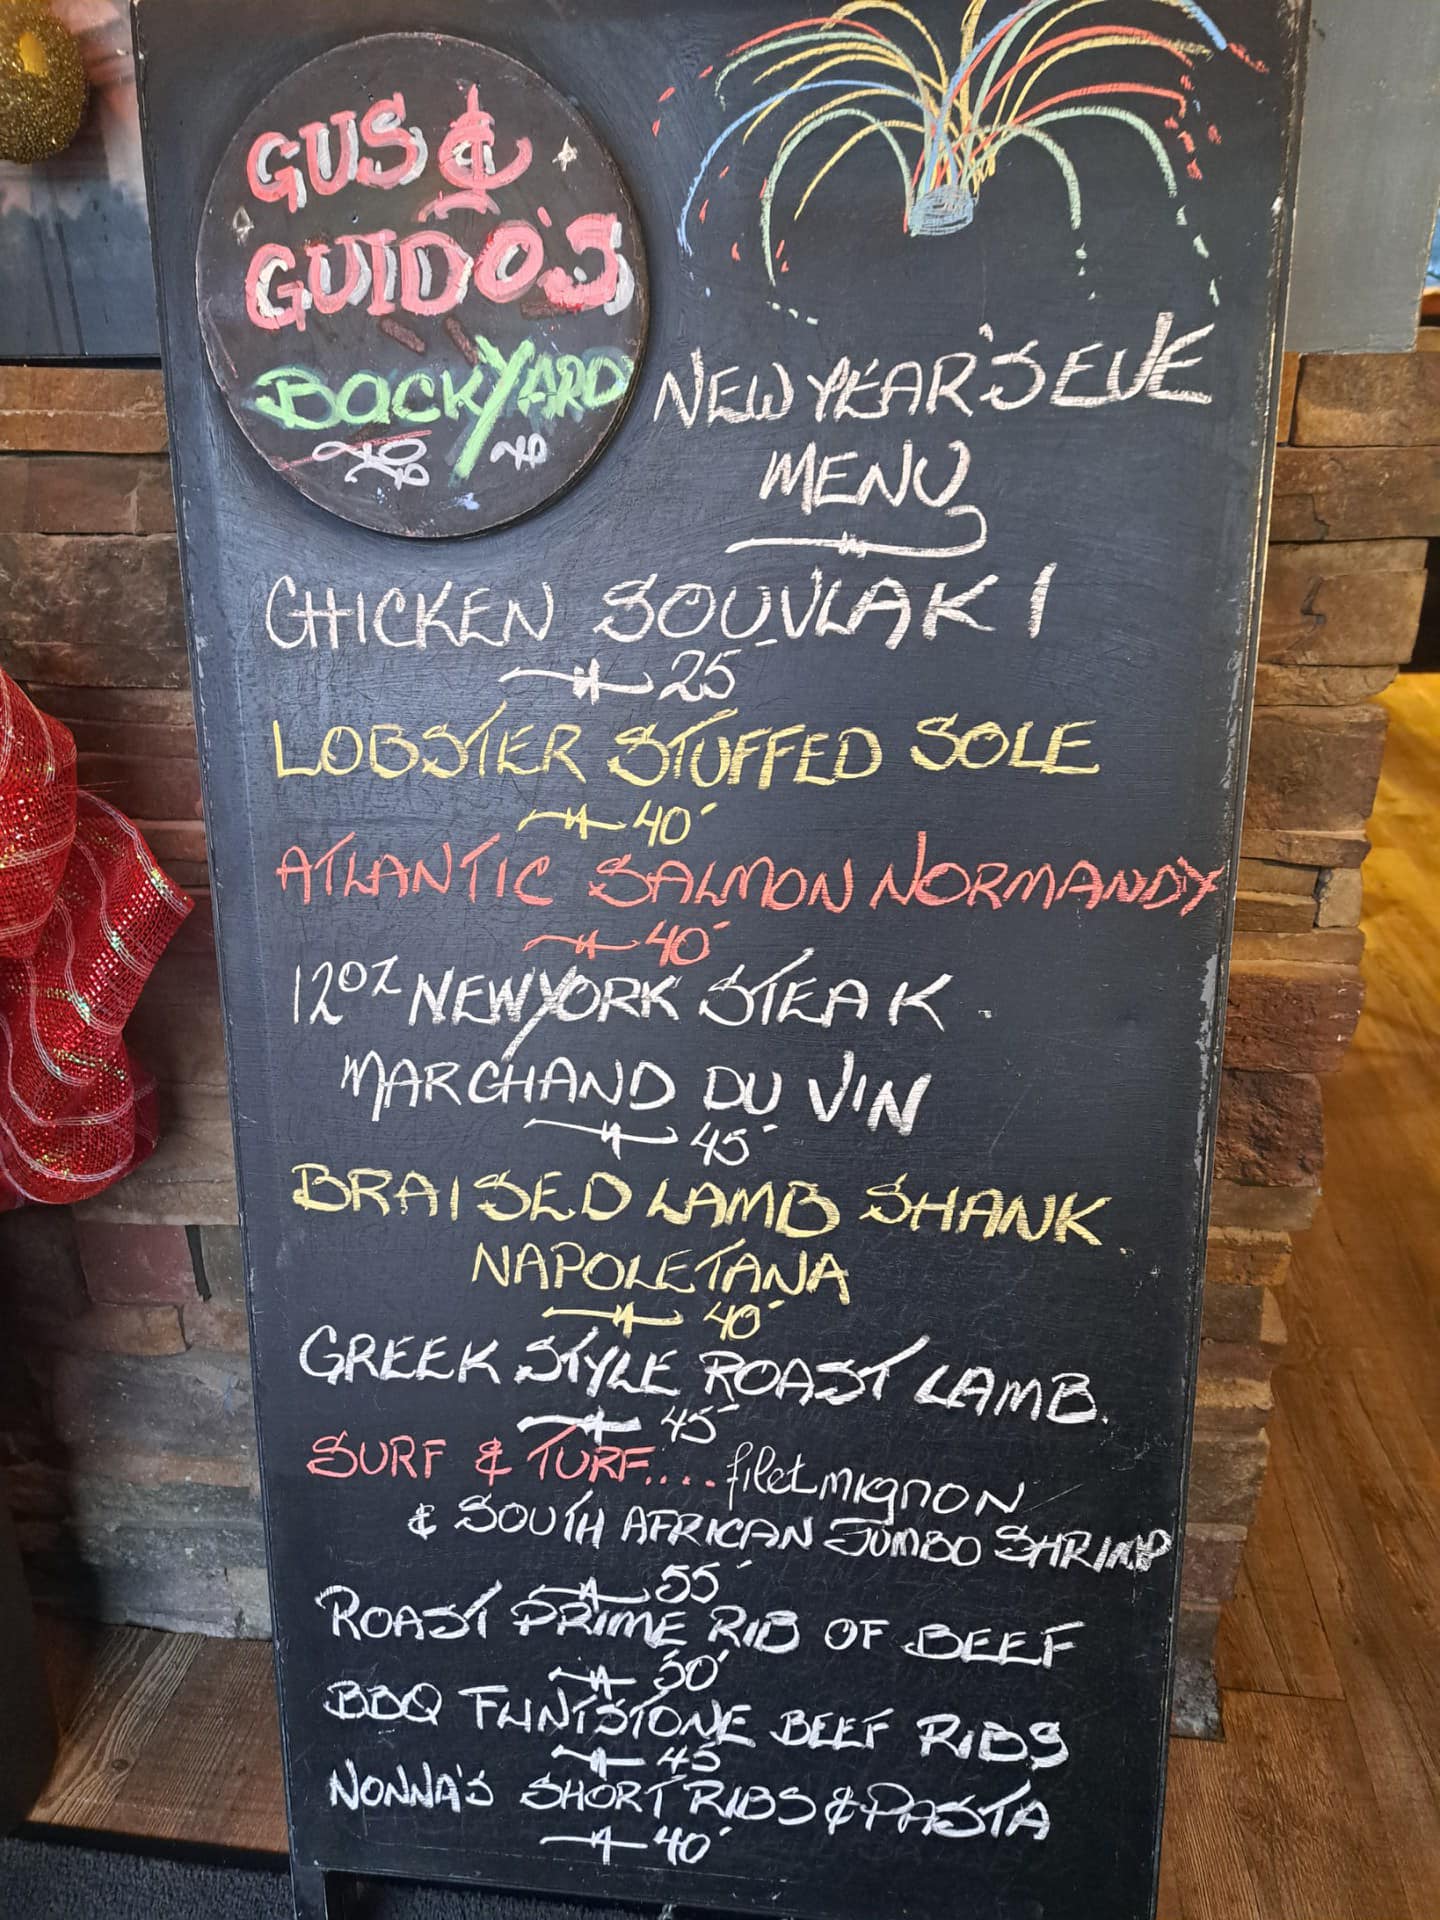 GUS &
GUIDO'S
BACKYARD
NEW YEAR'S EVE
MENU
CHICKEN SOUVLAKI
25
LOBSTER STUFFED SOLE
40
ATLANTIC SALMON NORMANDY
40
12OZ NEW YORK STEAK
MARCHAND DU VIN
45
BRAISED LAMB SHANK
NAPOLETANA
40
GREEK STYLE ROAST LAMB
45
SURF & TURF.... filet mignon
& SOUTH AFRICAN JUMBO SHRIMP
55
ROAST PRIME RIB OF BEEF
50
BBQ FLINTSTONE BEEF RIBS
45
NONNA'S SHORT RIBS & PASTA
40